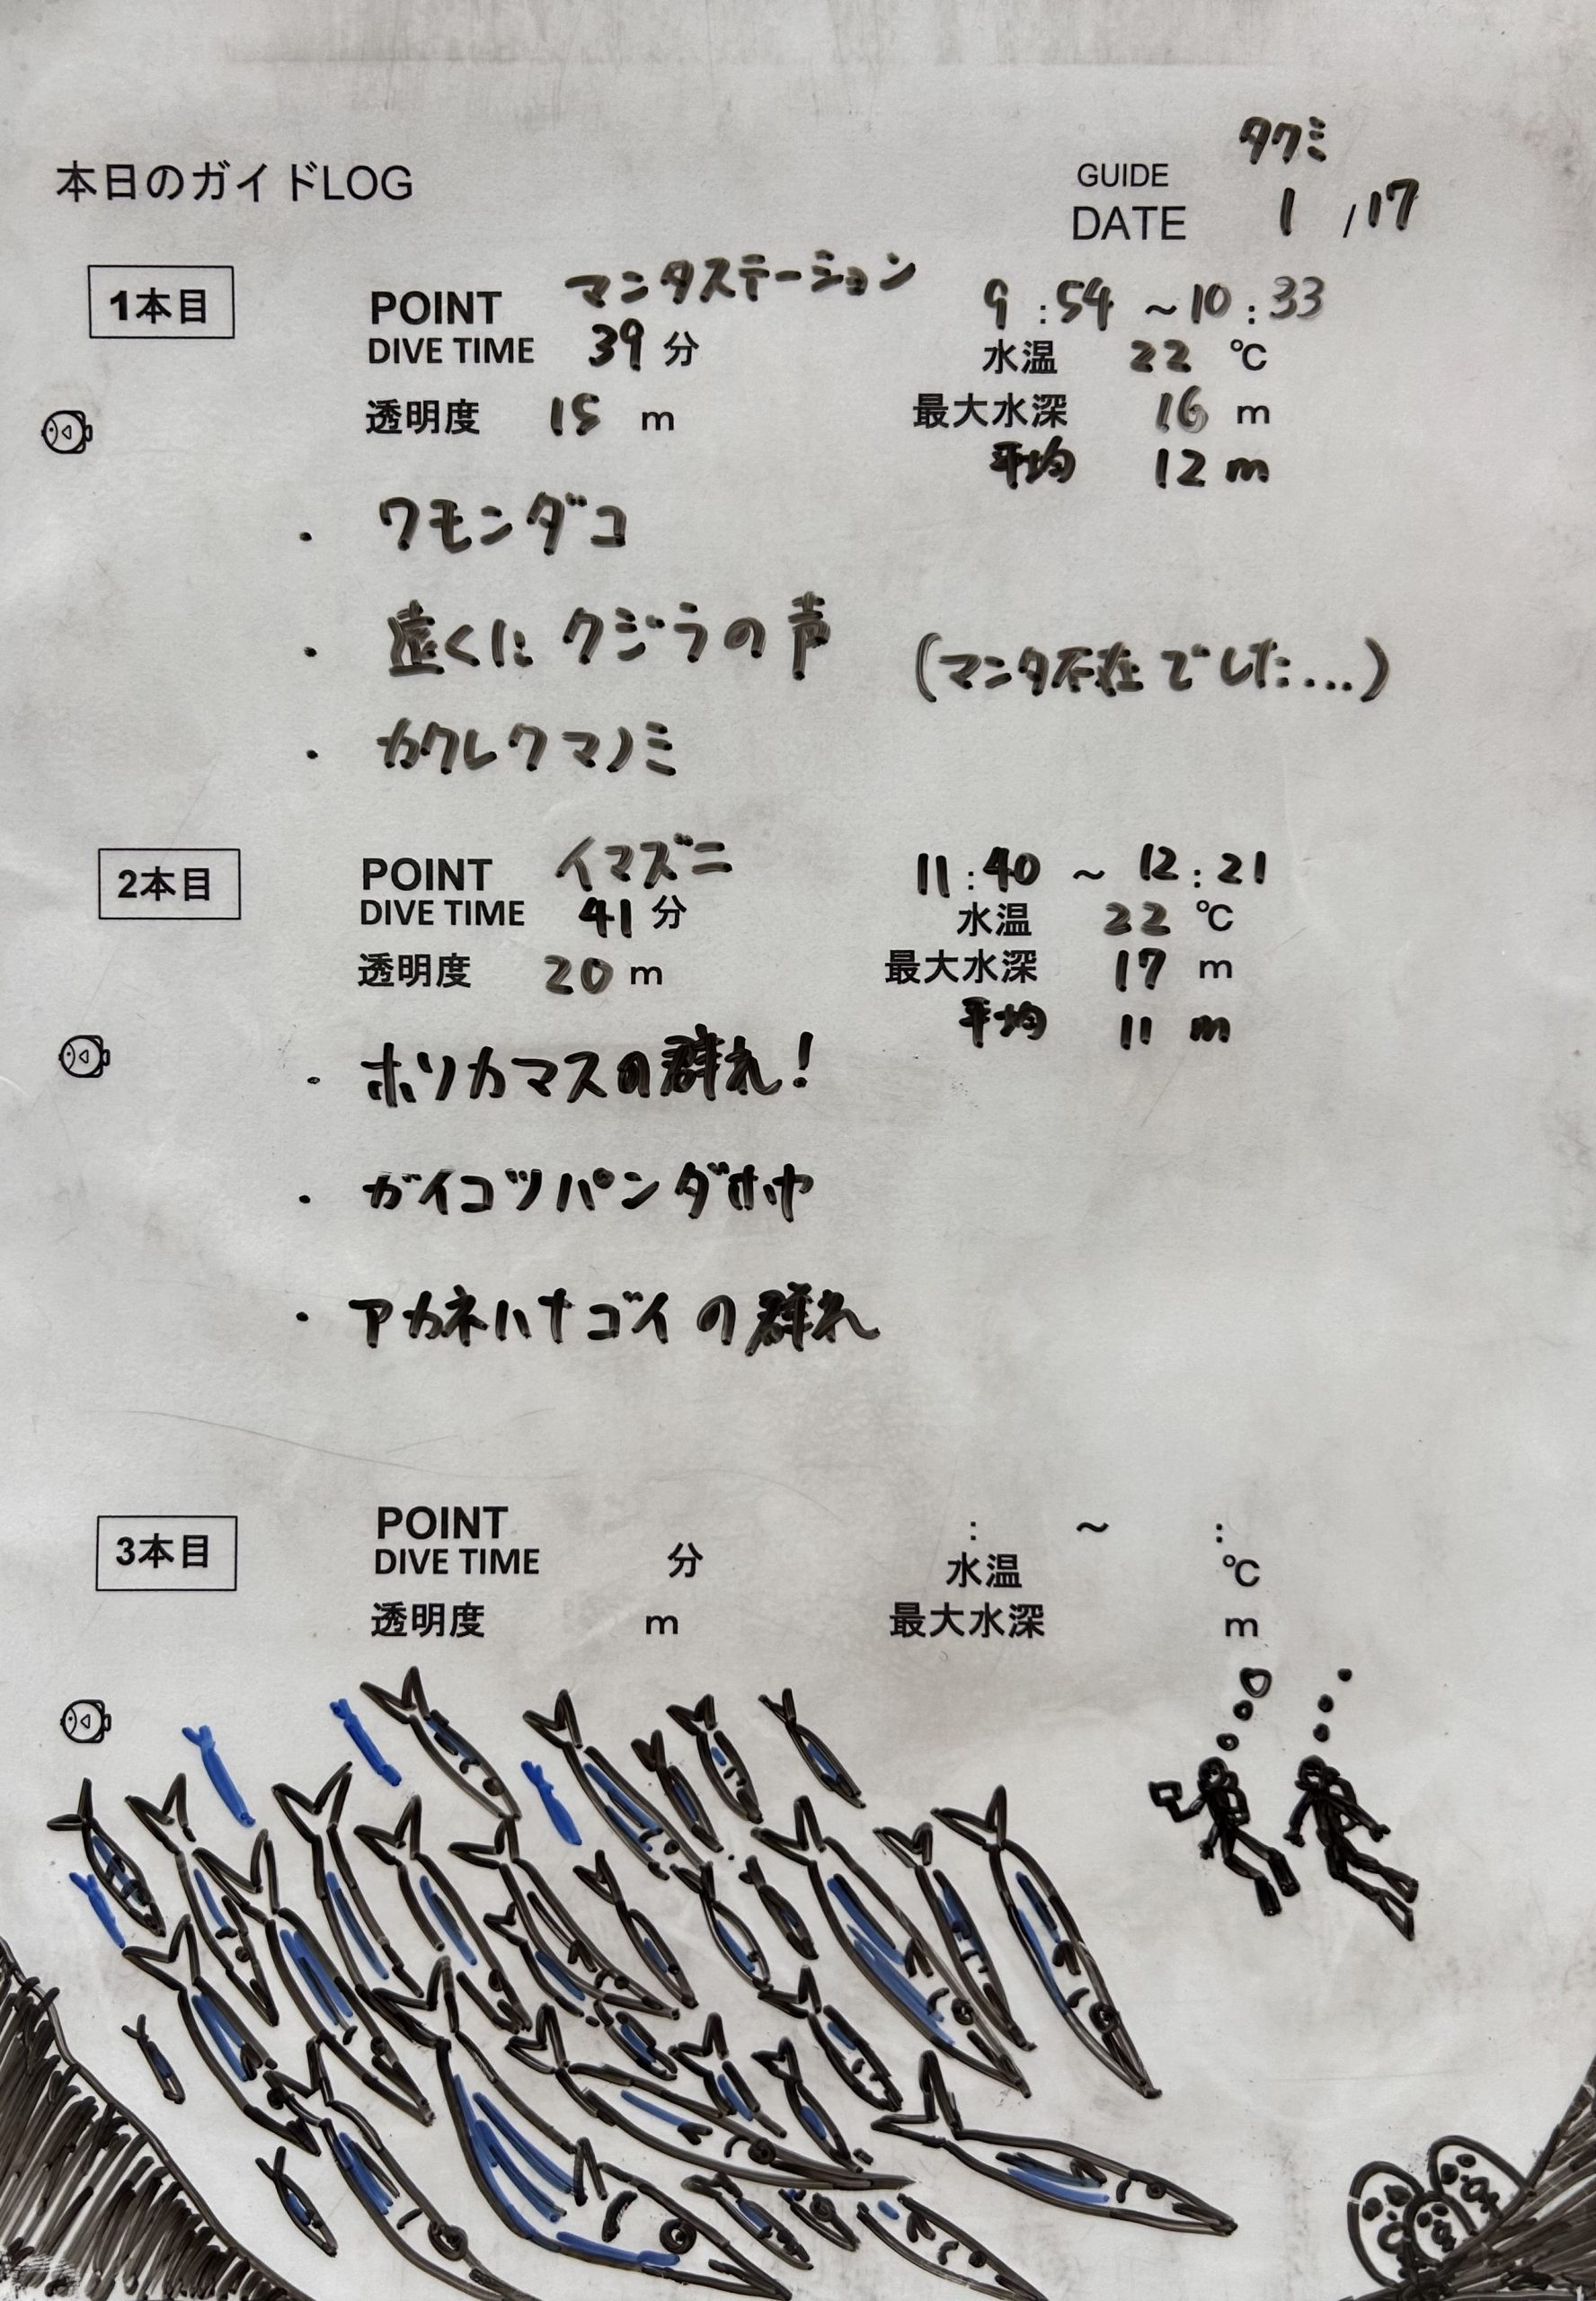 タクミ
本日のガイドLOG GUIDE
DATE 1/17
1本目 POINT マンタステーション 9:54 ~10:33
DIVE TIME 39分 水温 22 ℃
透明度 15 m 最大水深 16 m
平均 12m
・ワモンダコ
・遠くに クジラの声 (マンタ不在でした...)
・カクレクマノミ
2本目 POINT イマズニ 11:40 ~ 12:21
DIVE TIME 41分 水温 22 ℃
透明度 20 m 最大水深 17 m
平均 11 m
・ホソカマスの群れ!
・ガイコツパンダホヤ
・アカネハナゴイの群れ
3本目 POINT : ~ :
DIVE TIME 分 水温 ℃
透明度 m 最大水深 m